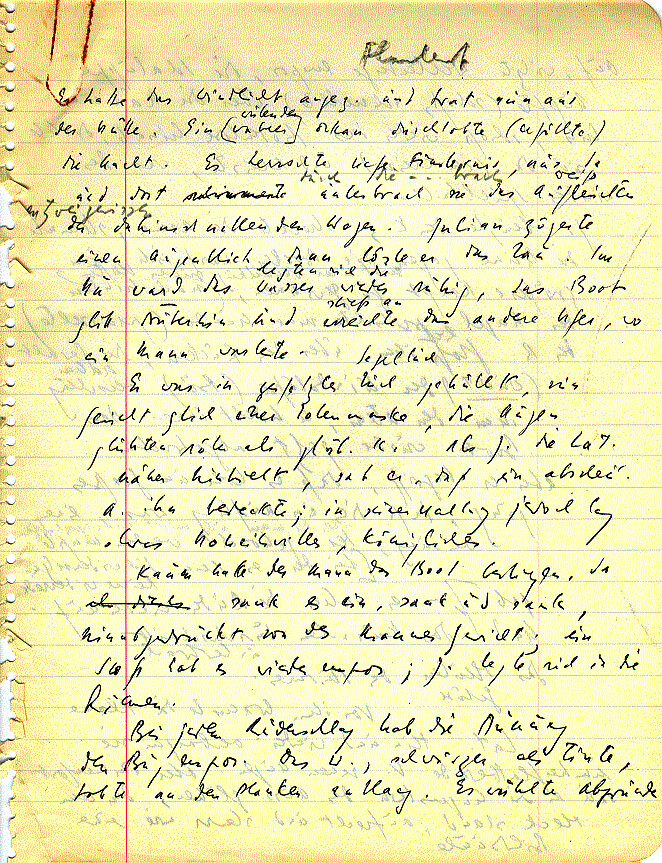 Er hatte das Windlicht angez. und trat nun aus
wütender
der Hütte. Ein [wahrer] Orkan durchtobte (erfüllte)
die Nacht. Es herrschte tiefe Finsternis, nur da
und dort schimmerte unterbrach sie das Aufleuchten
der dahinschnellenden Wogen. Julian zögerte
einen Augenblick dann löste er das Tau. Im
legten sich die
Nu ward das Wasser wieder ruhig, das Boot
stieß an
glitt hinüber und erreichte das andere Ufer, wo
ein Mann wartete.
Segeltuch
Er war in gehüllt, sein
Gesicht glich einer Totenmaske, die Augen
glühten röter als glüh. K. Als J. die Lat.
näher hinhielt, sah er, daß ein abscheul.
A. ihn bedeckte; in seiner Haltung jedoch lag
etwas Hoheitvolles, Königliches.
Kaum hatte der Mann das Boot bestiegen, da
als dieses sank es ein, sank und sank,
hinabgedrückt von des Mannes Gewicht; ein
Stoß hob es wieder empor; J. legte sich in die
Riemen.
Bei jedem Ruderschlag hob die Dünung
den Bug empor. Das W., schwärzer als Tinte,
tobte an den Planken entlang. Es wühlte Abgründe